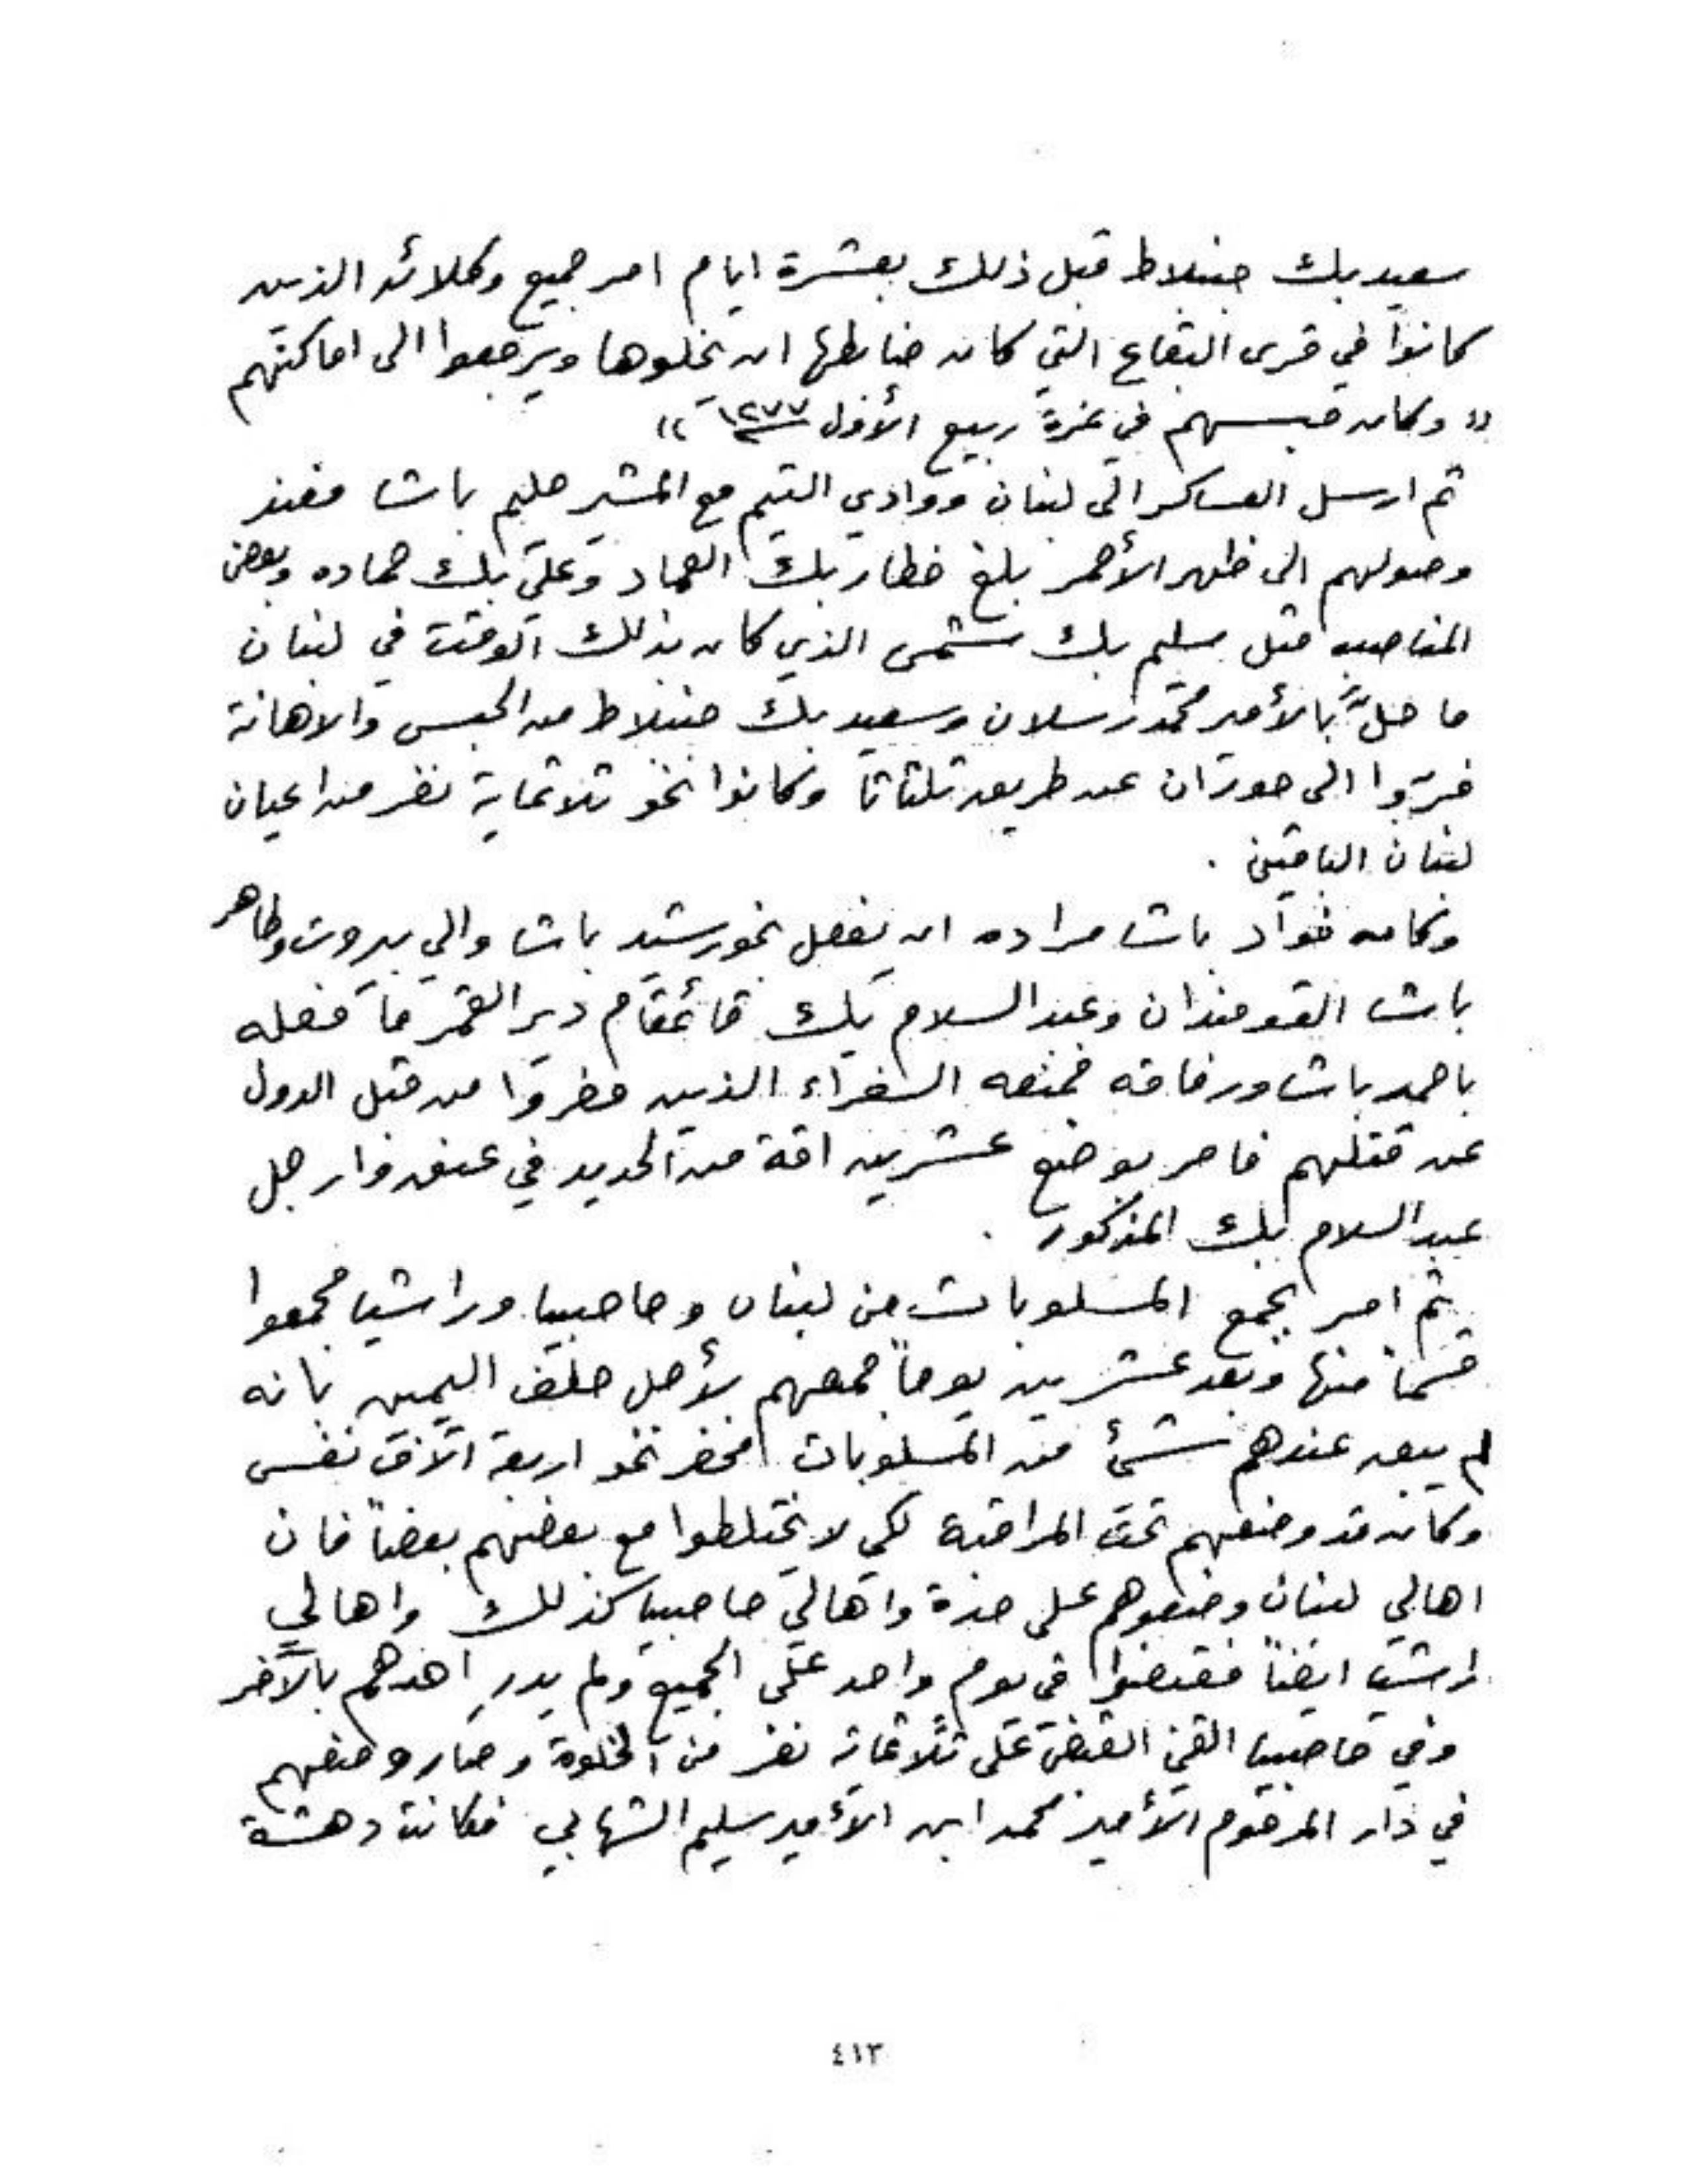 سعيد بك جنبلاط قبل ذلك بعشرة ايام امر جميع وكلائه الذين
كانوا في قرى البقاع التي كان ضابطها ان يخلوها ويرجعوا الى اماكنهم
« وكان حبسهم في غرة ربيع الأول ١٢٧٧ »
ثم ارسل العساكر الى لبنان ووادي التيم مع المشير حليم باشا فعند
وصولهم الى ظهر الأحمر بلغ خطار بك العماد وعلي بك حماده وبعض
المناصب مثل سليم بك شمس الذي كان بذلك الوقت في لبنان
ما حلَّ بالأمير محمد رسلان وسعيد بك جنبلاط من الحبس والاهانة
فرّوا الى حوران عن طريق تلثاتا وكانوا نحو ثلاثماية نفر من اعيان
لبنان الباقين .
وكان فؤاد باشا مراده ان يفعل بخورشيد باشا والي بيروت وطاهر
باشا القومندان وعبد السلام بك قائمقام دير القمر ما فعله
باحمد باشا ورفاقه فمنعه السفراء الذين حضروا من قبل الدول
عن قتلهم فامر بوضع عشرين اقة من الحديد في عنق وارجل
عبد السلام بك المذكور .
ثم امر بجمع المسلوبات من لبنان وحاصبيا وراشيا فجمعوا
قسماً منها وبعد عشرين يوماً جمعهم لأجل حلف اليمين بانه
لم يبق عندهم شئ من المسلوبات فحضر نحو اربعة آلاف نفس
وكان قد وضعهم تحت المراقبة لكي لا يختلطوا مع بعضهم بعضاً فان
اهالي لبنان وضعوهم على حدة واهالي حاصبيا كذلك واهالي
راشيا ايضاً فقبضوا في يوم واحد على الجميع ولم يدرِ احدهم بالآخر
وفي حاصبيا القي القبض على ثلاثماية نفر من الخلوة وصار وضعهم
في دار المرقوم الأمير محمد ابن الأمير سليم الشهابي فكانت دهشة
٤١٣